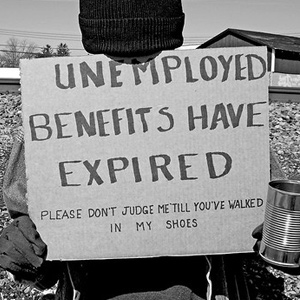 UNEMPLOYED
BENEFITS HAVE
EXPIRED
PLEASE DON'T JUDGE ME 'TILL YOU'VE WALKED
IN MY SHOES